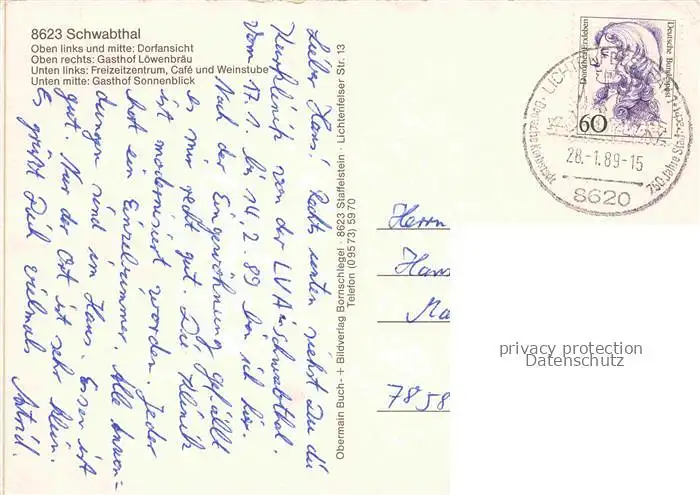 8623 Schwabthal
Oben links und mitte: Dorfansicht
Oben rechts: Gasthof Löwenbräu
Unten links: Freizeitzentrum, Café und Weinstube
Unten mitte: Gasthof Sonnenblick
Lieber Hans! Rechts unten siehst Du die
Kurklinik von der LVA in Schwabthal.
Vom 17.1. bis 14.2.89 bin ich hier.
Nach der Eingewöhnung gefällt
es mir recht gut. Die Klinik
ist modernisiert worden. Jeder
hat ein Einzelzimmer. Alle Anwen=
dungen sind im Haus. Essen ist
gut. Nur der Ort ist sehr klein.
Es grüßt Dich vielmals
Astrid.
Obermain Buch- + Bildverlag Bornschlegel · 8623 Staffelstein · Lichtenfelser Str. 13
Telefon (09573) 5970
Deutsche Bundespost
60
28.-1.89-15
8620
750 Jahre Stadt
Herrn
Hans
Ma
7858
privacy protection
Datenschutz